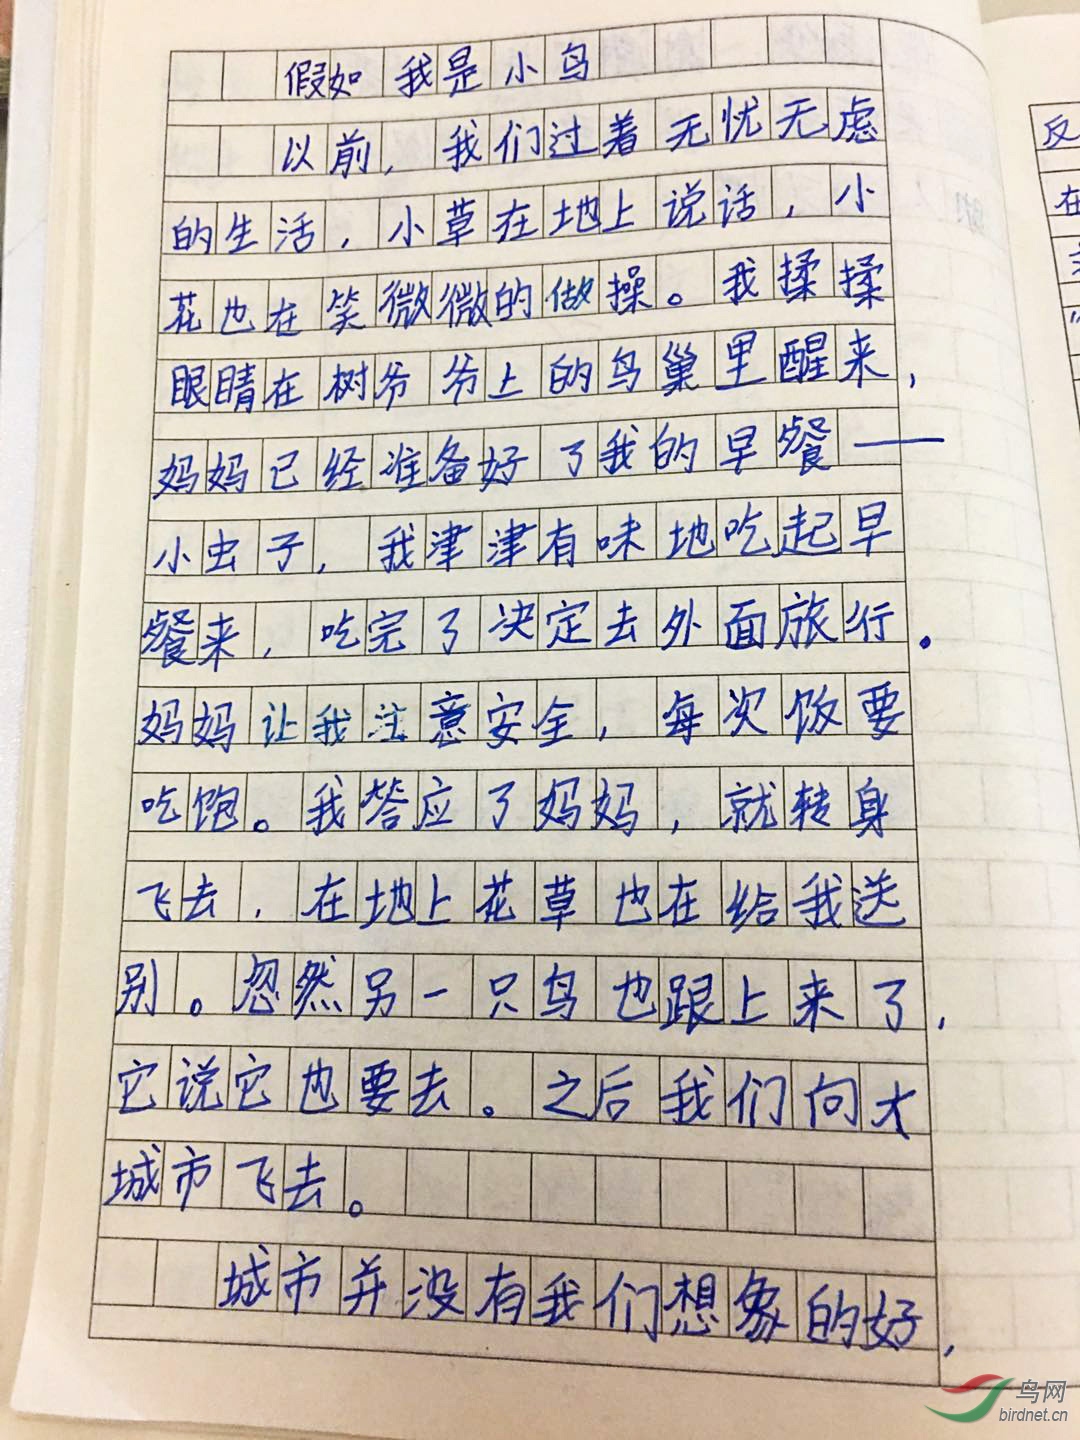 假如我是小鸟
以前，我们过着无忧无虑
的生活，小草在地上说话，小
花也在笑微微的做操。我揉揉
眼睛在树爷爷上的鸟巢里醒来，
妈妈已经准备好了我的早餐——
小虫子，我津津有味地吃起早
餐来，吃完了决定去外面旅行。
妈妈让我注意安全，每次饭要
吃饱。我答应了妈妈，就转身
飞去，在地上花草也在给我送
别。忽然另一只鸟也跟上来了，
它说它也要去。之后我们向大
城市飞去。
城市并没有我们想象的好，
反
在
鸟网
birdnet.cn